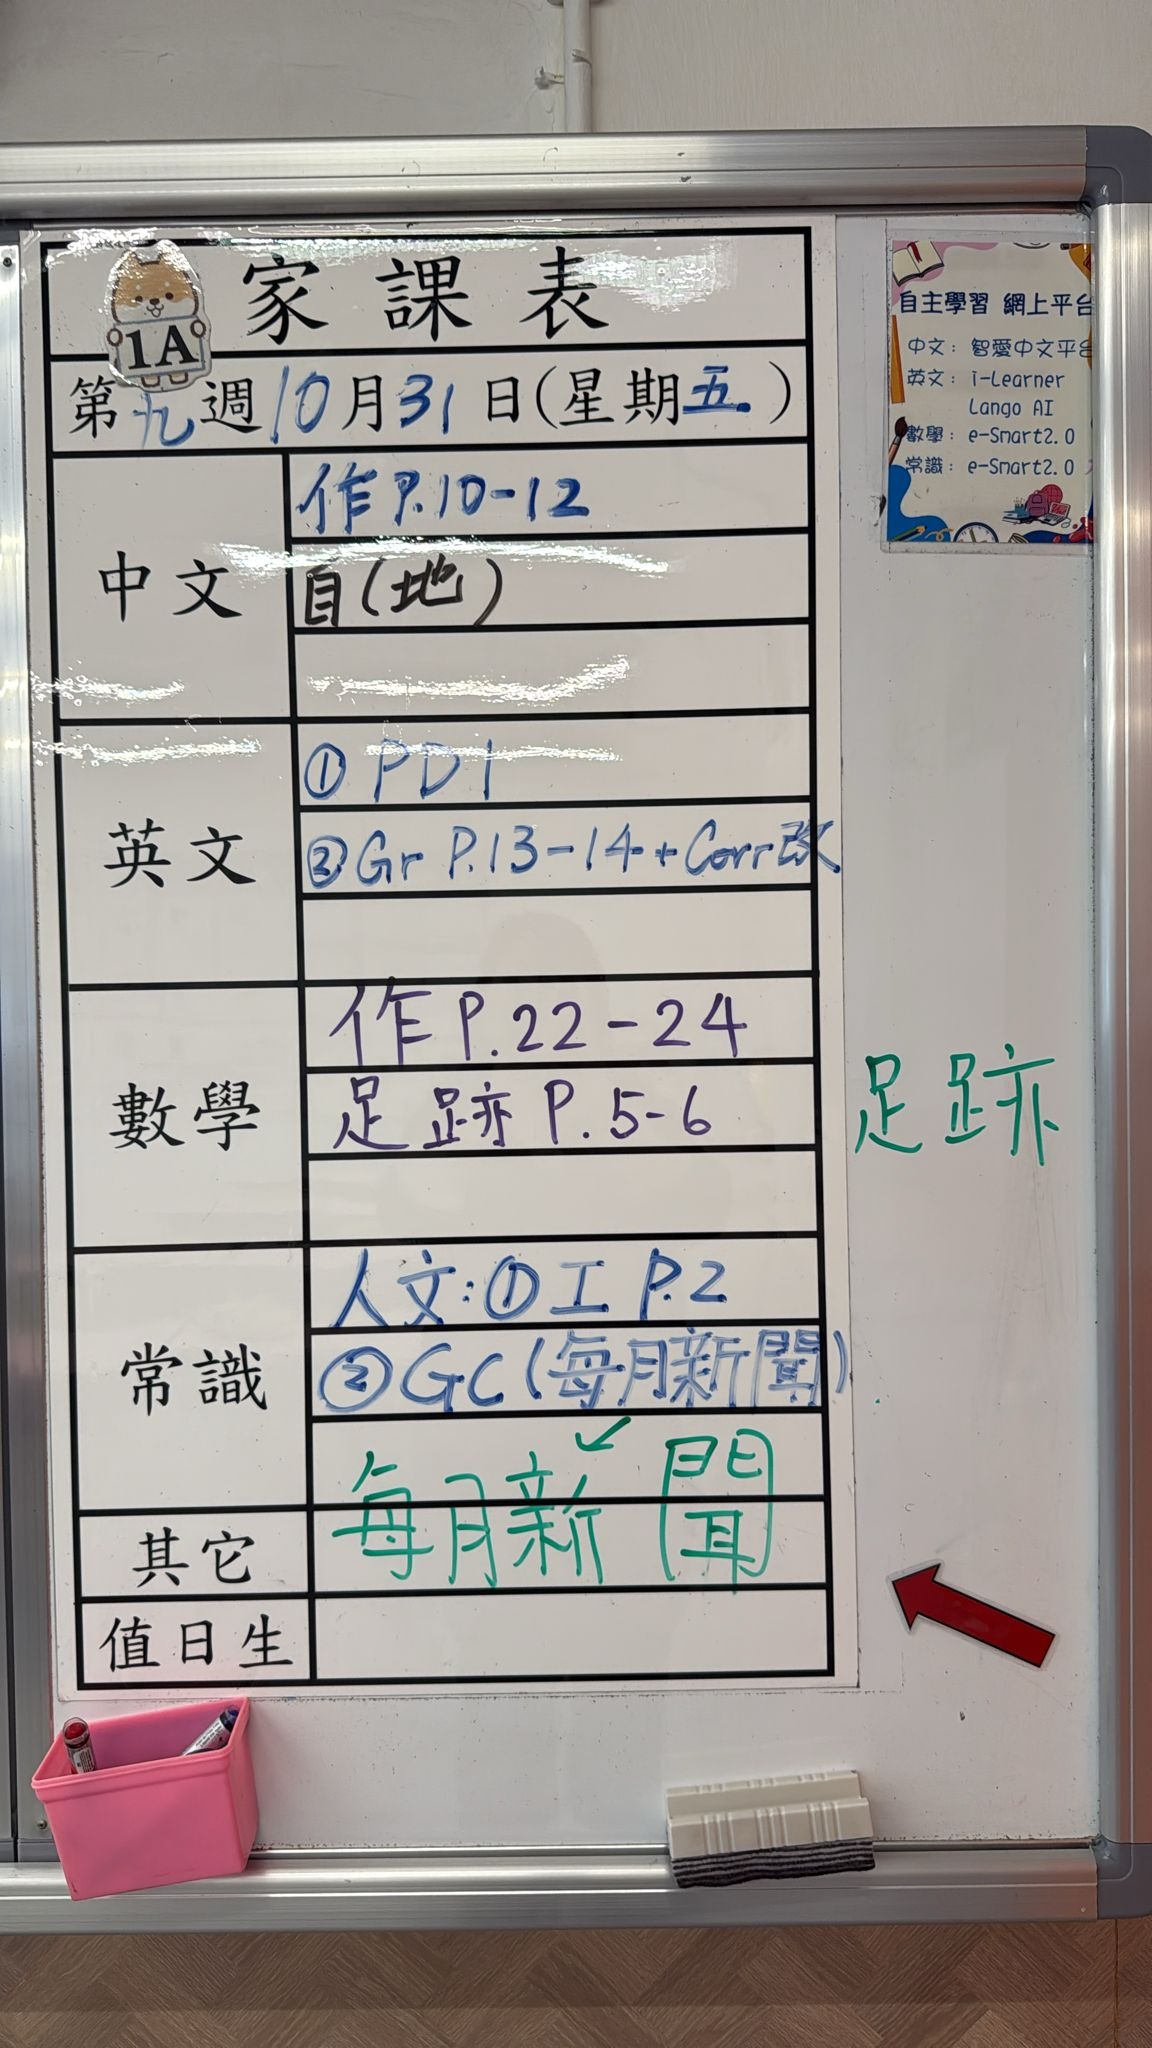 家課表
1A
第九週10月31日(星期五)
中文
作 P.10-12
自(地)
英文
① PD1
② Gr P.13-14 + Corr改
數學
作 P.22-24
足跡 P.5-6
足跡
常識
人文:① 工 P.2
② GC(每月新聞)
每月新聞
其它
值日生
自主學習 網上平台
中文: 智愛中文平台
英文: i-Learner
Lango AI
數學: e-Smart2.0
常識: e-Smart2.0